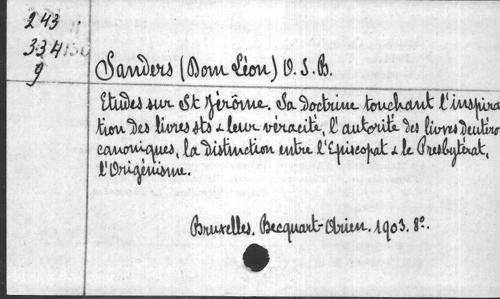 243
334
9
Sanders (Dom Léon) O. S. B.
Etudes sur St Jérôme. Sa doctrine touchant l'inspira
tion des livres sts & leur véracité, l'autorité des livres deutéro
canoniques, la distinction entre l'Episcopat & le Presbytérat,
l'Origénisme.
Bruxelles, Becquart-Arien. 1903. 8°.